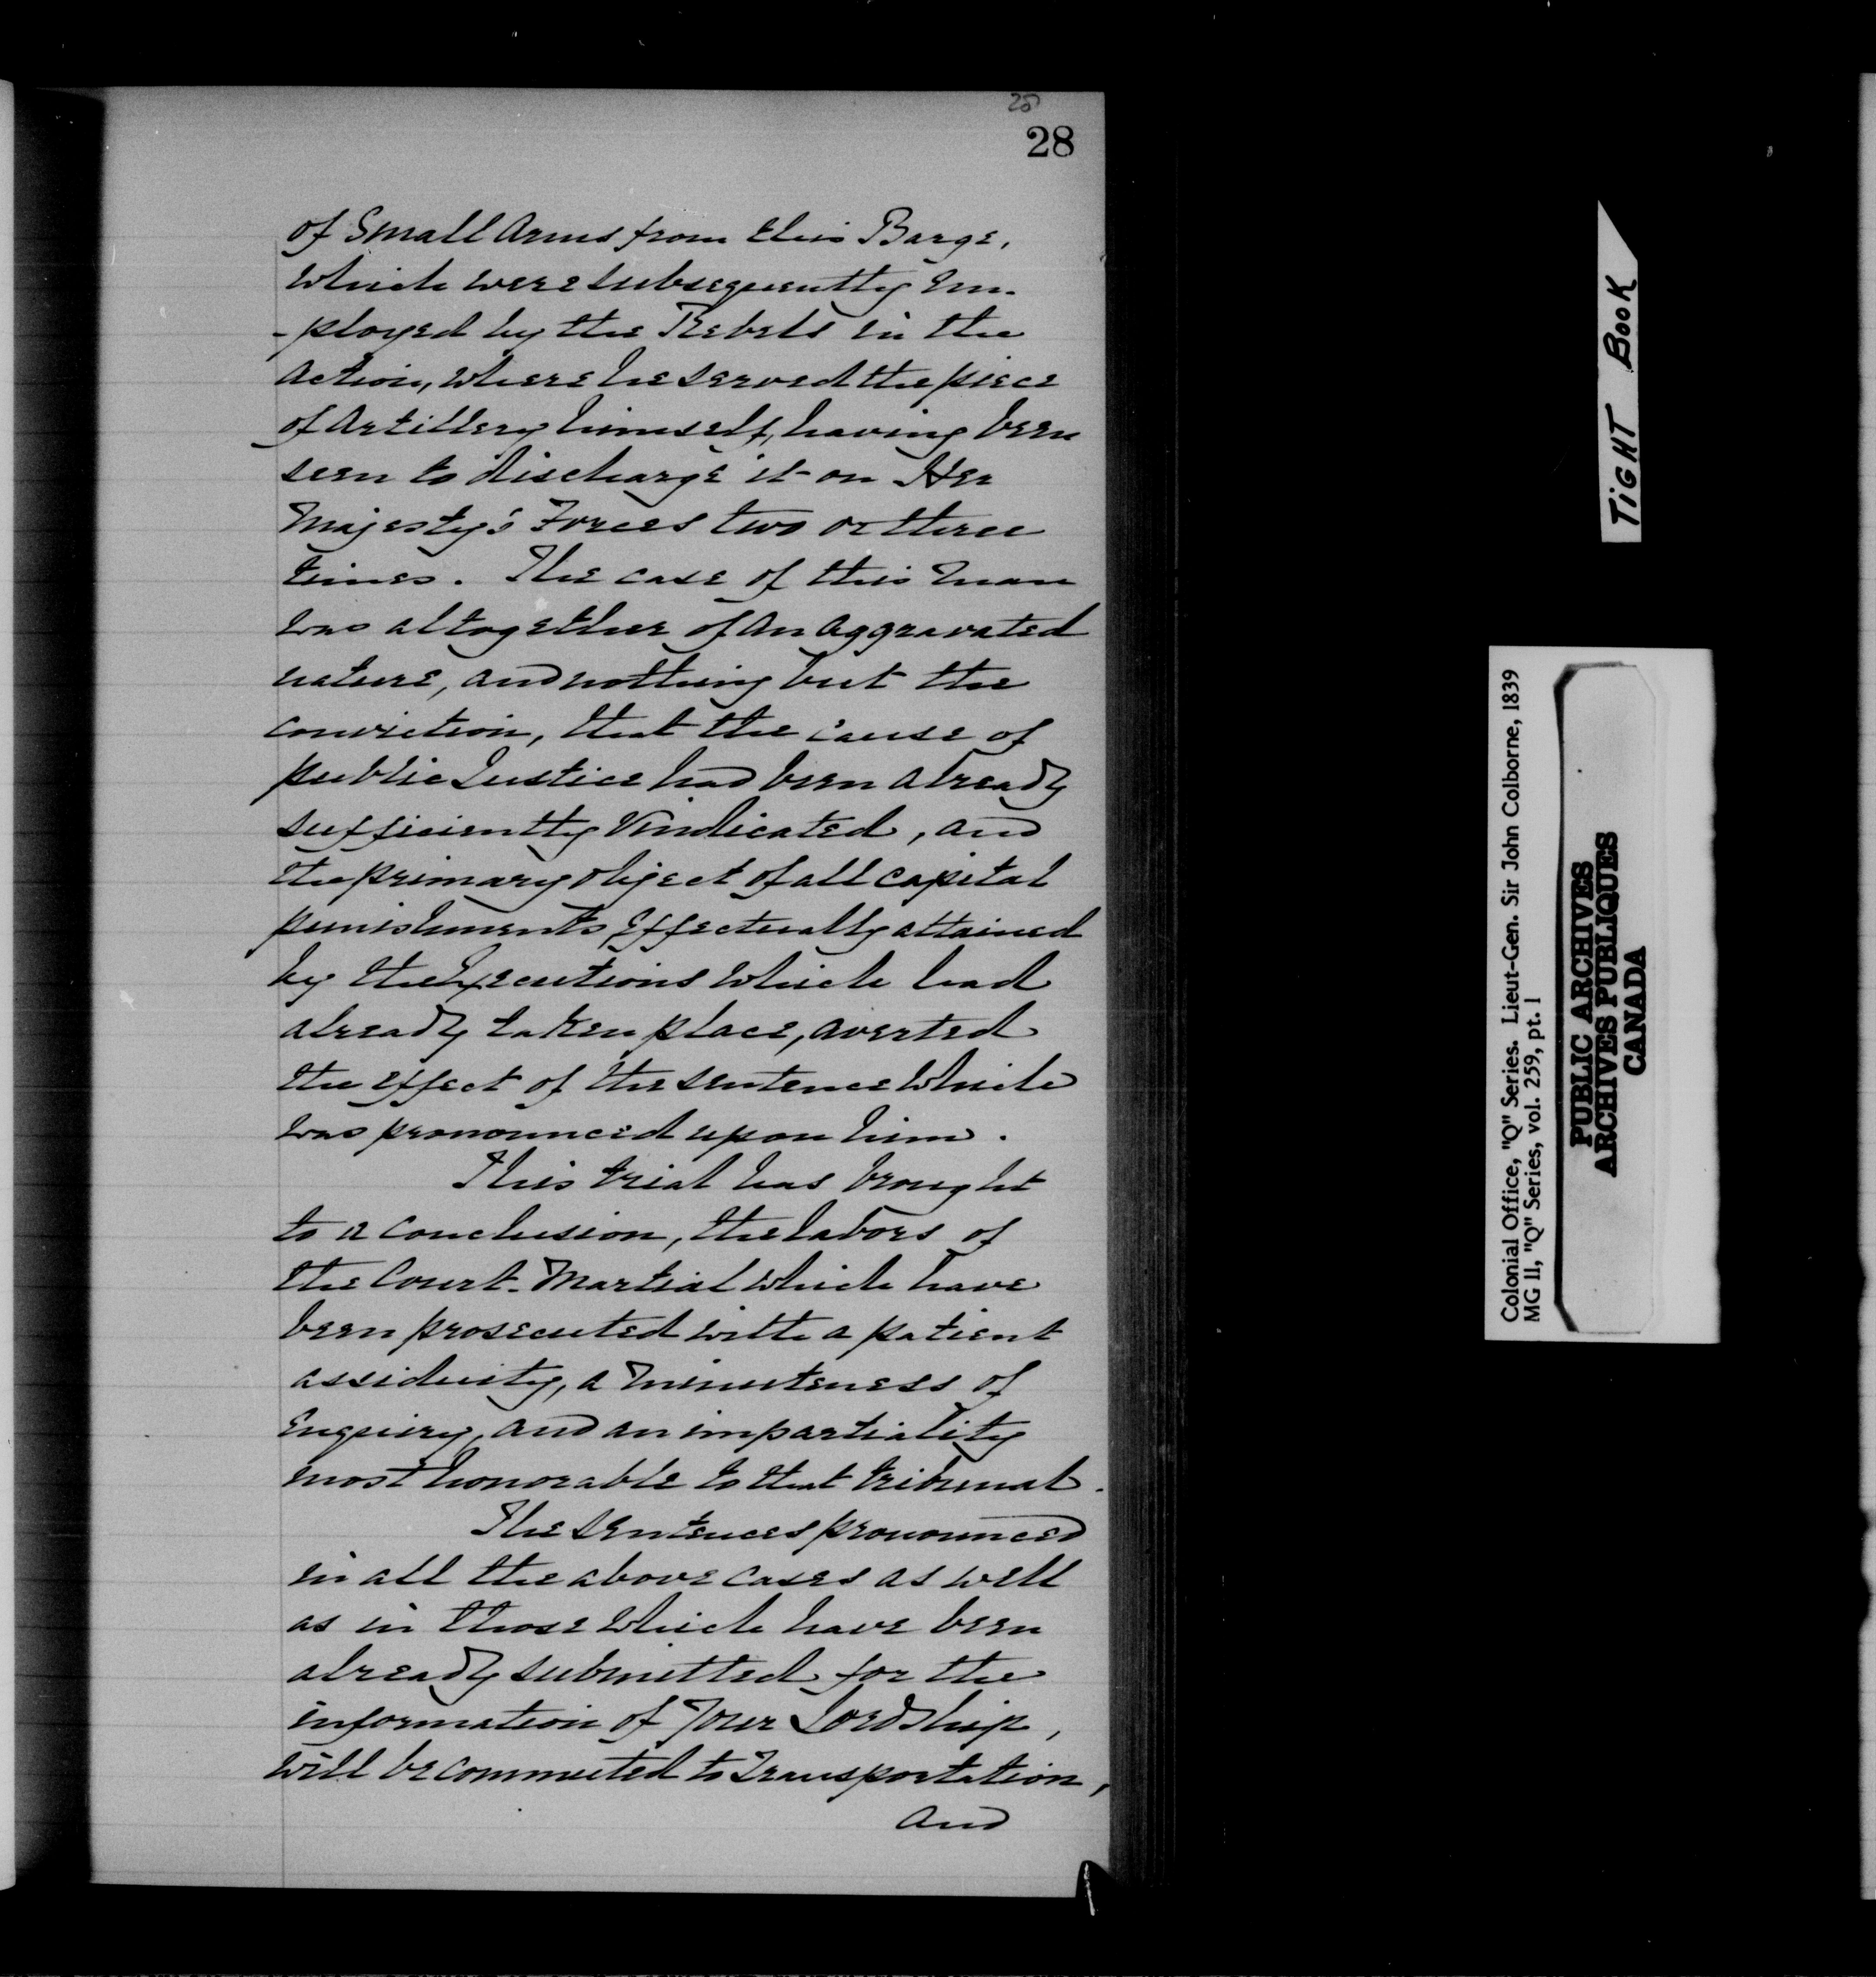 25
28
of Small Arms from this Barge,
which were subsequently em-
-ployed by the Rebels in the
action, where he served the piece
of Artillery himself, having been
seen to discharge it on Her
Majesty's Forces two or three
times. The case of this man
was altogether of an aggravated
nature, and nothing but the
conviction, that the cause of
public Justice had been already
sufficiently vindicated, and
the primary object of all capital
punishments, effectually attained
by the Executions which had
already taken place, averted
the effect of the sentence which
was pronounced upon him.
This trial has brought
to a conclusion, the labors of
the Court-Martial which have
been prosecuted with a patient
assiduity, a minuteness of
Enquiry, and an impartiality
most honorable to that tribunal.
The sentences pronounced
in all the above cases as well
as in those which have been
already submitted for the
information of Your Lordship,
will be commuted to Transportation,
and
TIGHT BOOK
Colonial Office, "Q" Series. Lieut-Gen. Sir John Colborne, 1839
MG 11, "Q" Series, vol. 259, pt. 1
PUBLIC ARCHIVES
ARCHIVES PUBLIQUES
CANADA